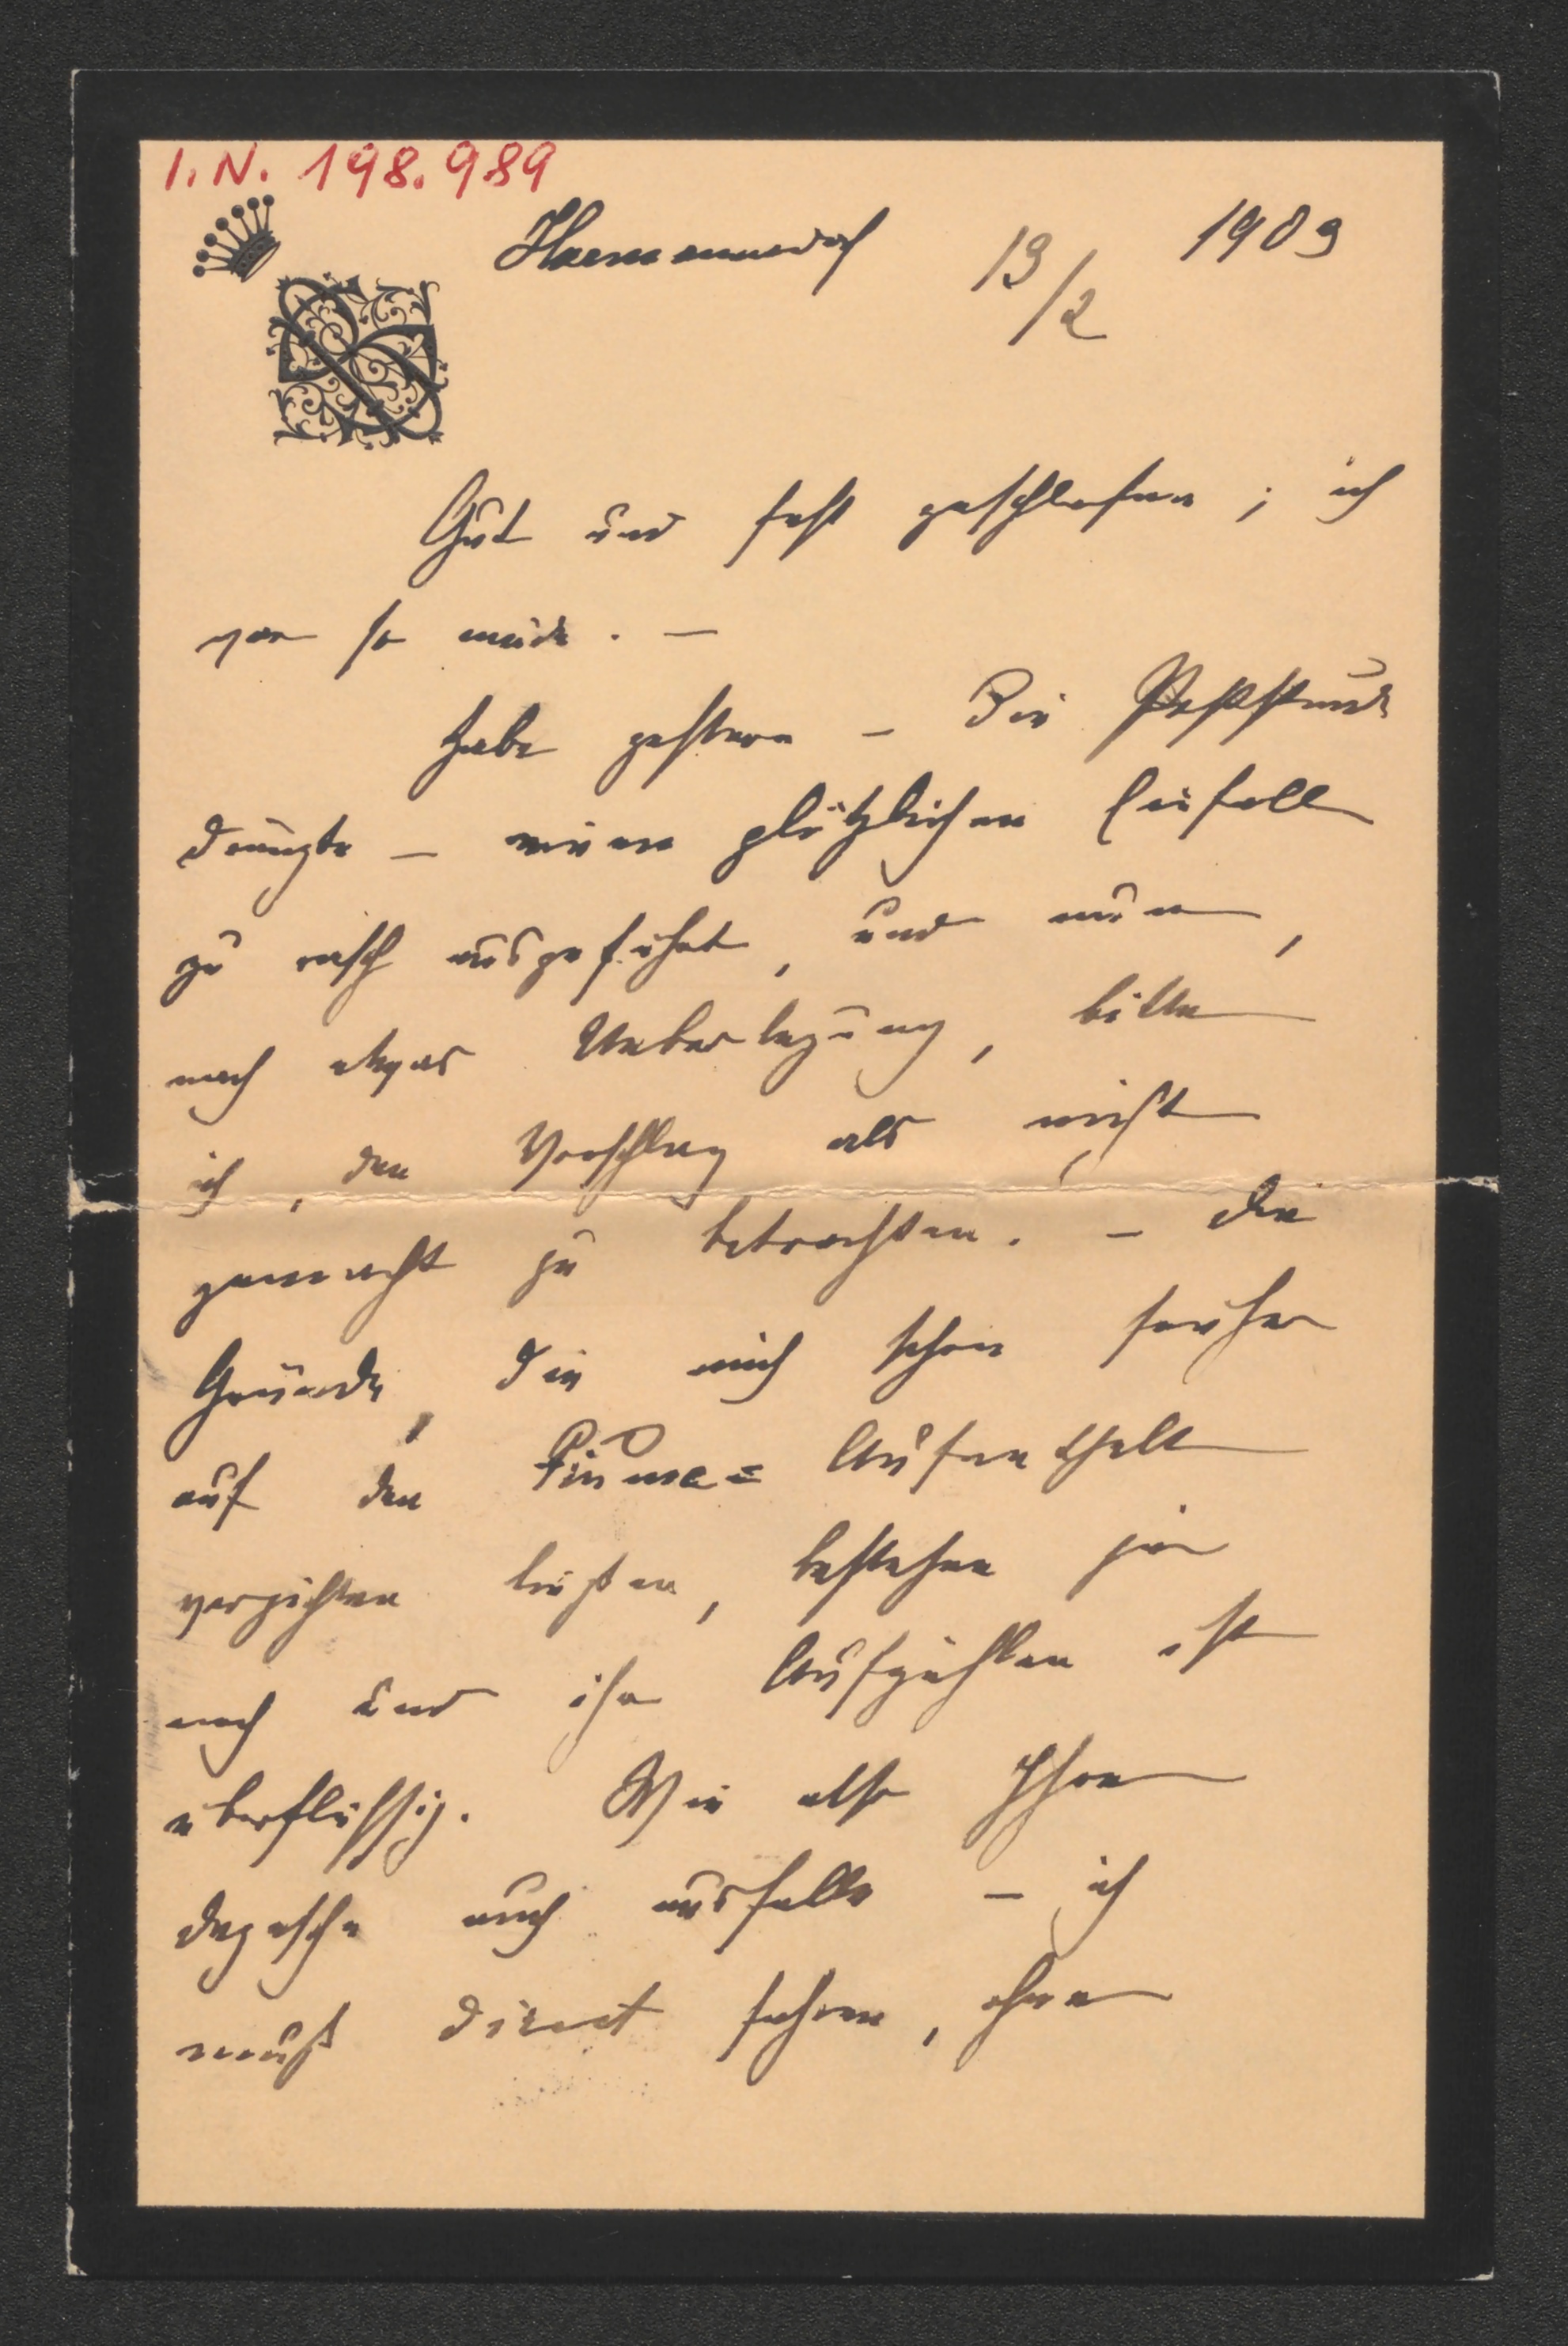 I.N. 198.989
Harmannsdorf 19/2 1903
Gut und fest geschlafen; ich
war so müde. –
Habe gestern – die Poststunde
drängte – einen plötzlichen Einfall
zu rasch ausgeführt, und nun,
nach etwas Ueberlegung, bitte
ich, den Vorschlag als nicht
gemacht zu betrachten. – Die
Gründe, die mich schon früher
auf den Fiume= Aufenthalt
verzichten ließen, bestehen ja
noch und ihr Aufzählen ist
überflüssig. Wie also Ihre
Depesche auch ausfalle – ich
muß direct fahren, ohne